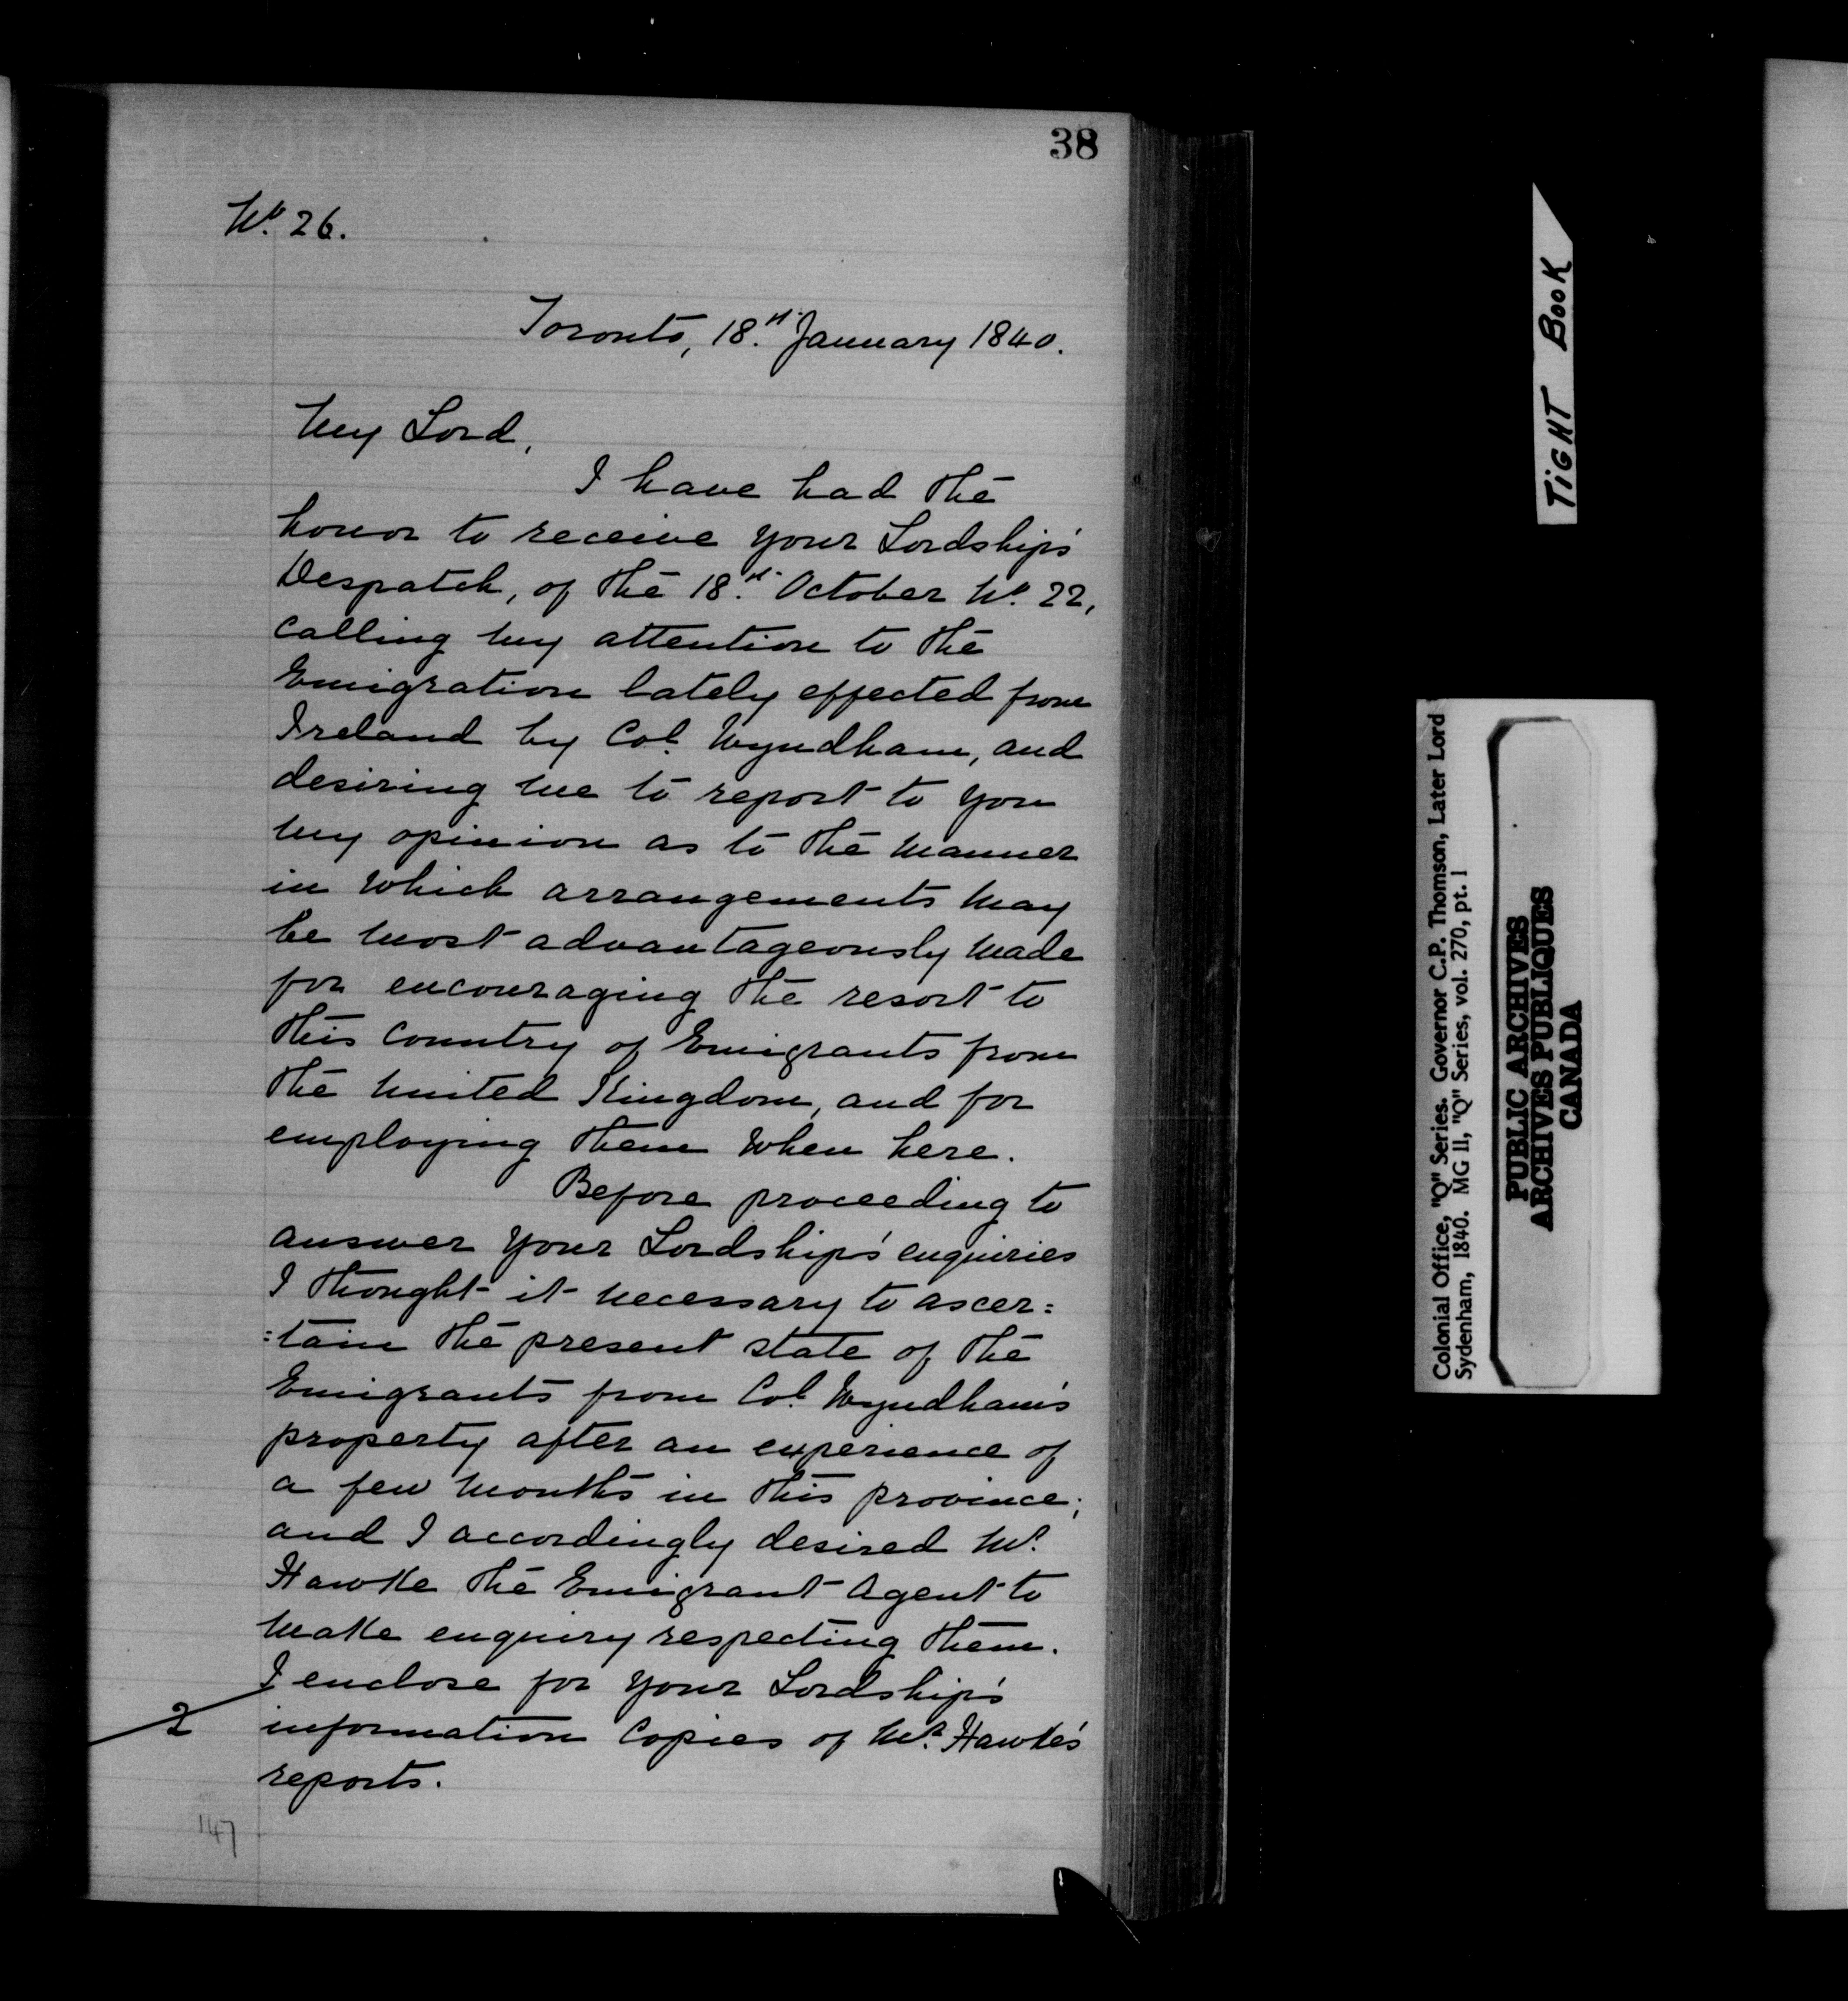 38
No. 26.
Toronto, 18th January 1840.
My Lord,
I have had the
honor to receive your Lordship's
Despatch, of the 18th October No. 22,
calling my attention to the
Emigration lately effected from
Ireland by Col. Wyndham, and
desiring me to report to you
my opinion as to the manner
in which arrangements may
be most advantageously made
for encouraging the resort to
this Country of Emigrants from
the United Kingdom, and for
employing them when here.
Before proceeding to
answer your Lordship's enquiries
I thought it necessary to ascer=
=tain the present state of the
Emigrants from Col. Wyndham's
property after an experience of
a few months in this province;
and I accordingly desired Mr.
Hawke the Emigrant Agent to
make enquiry respecting them.
I enclose for your Lordship's
2
information Copies of Mr. Hawke's
reports.
147
TIGHT BOOK
Colonial Office, "Q" Series. Governor C.P. Thomson, Later Lord
Sydenham, 1840. MG 11, "Q" Series, vol. 270, pt. 1
PUBLIC ARCHIVES
ARCHIVES PUBLIQUES
CANADA